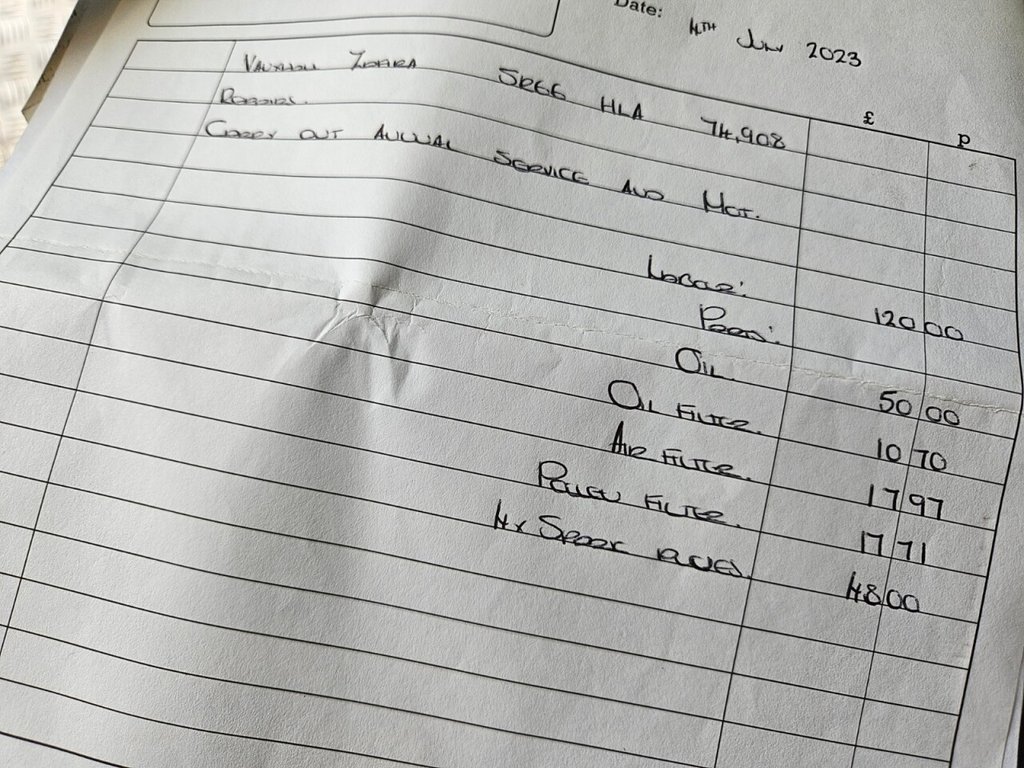 Date: 4TH 2023
£ P
VAUXHALL ZAFIRA SR66 HLA 74,908
REPAIRS.
CARRY OUT ANNUAL SERVICE AND MOT.
LABOUR: 120 00
PARTS:
OIL. 50 00
OIL FILTER. 10 70
AIR FILTER. 17 97
POLLEN FILTER. 17 71
4x SPARK PLUGS. 48 00